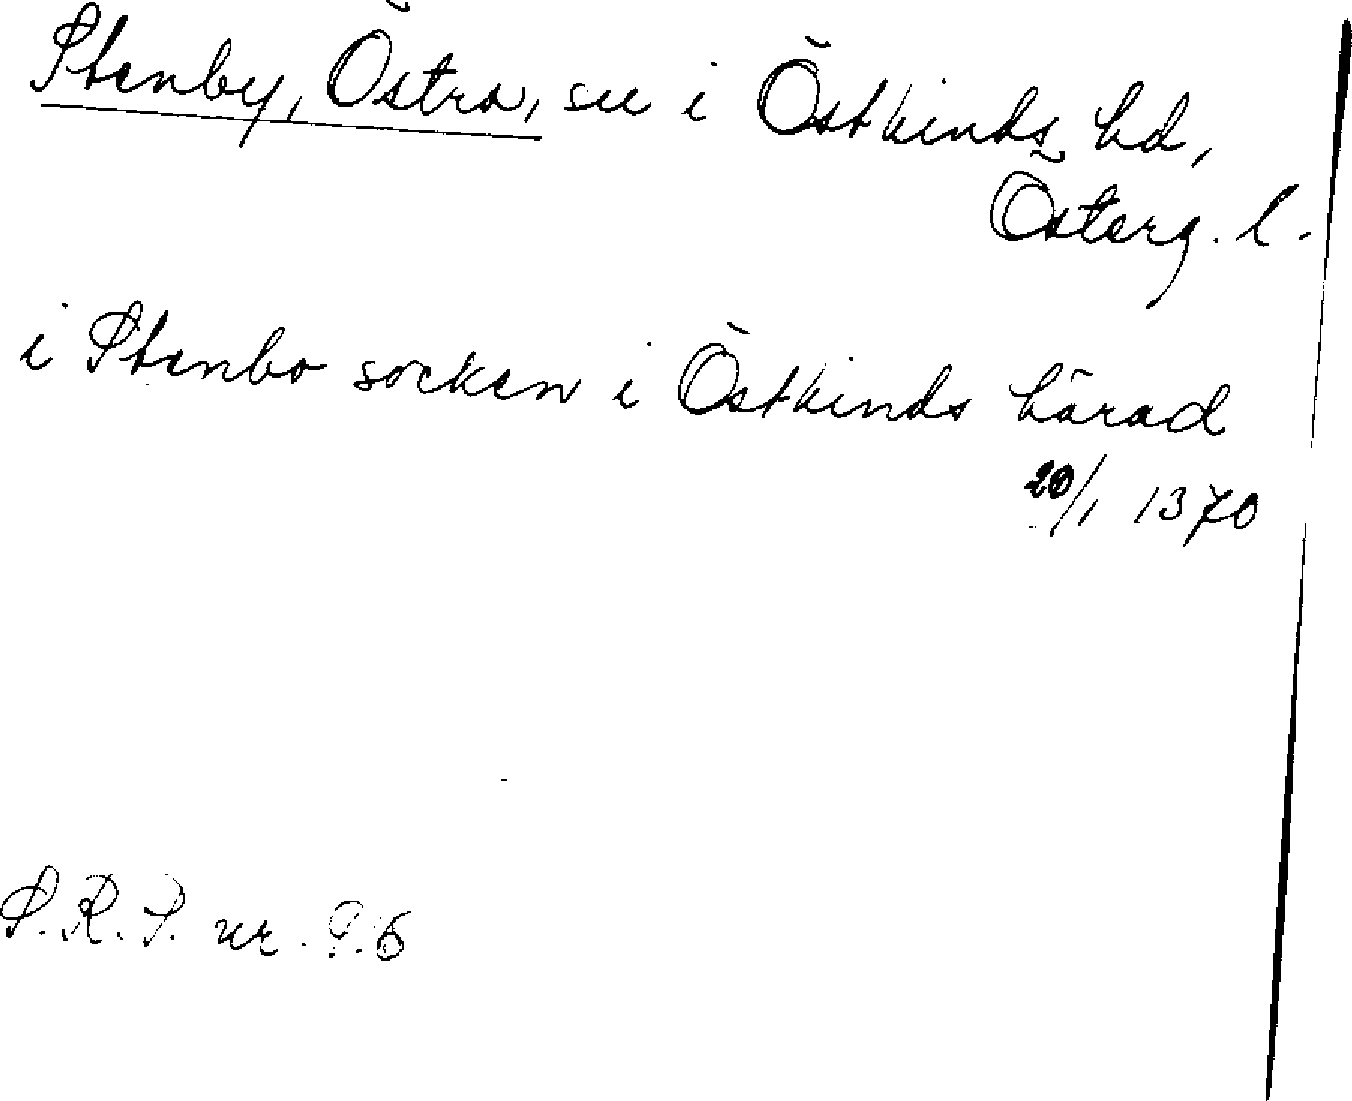 Stenby, Östra, sn i Östkinds hd,
Österg. l.
i Stenbo socken i Östkinds härad
20/1 1370
S.R.P. nr. 96